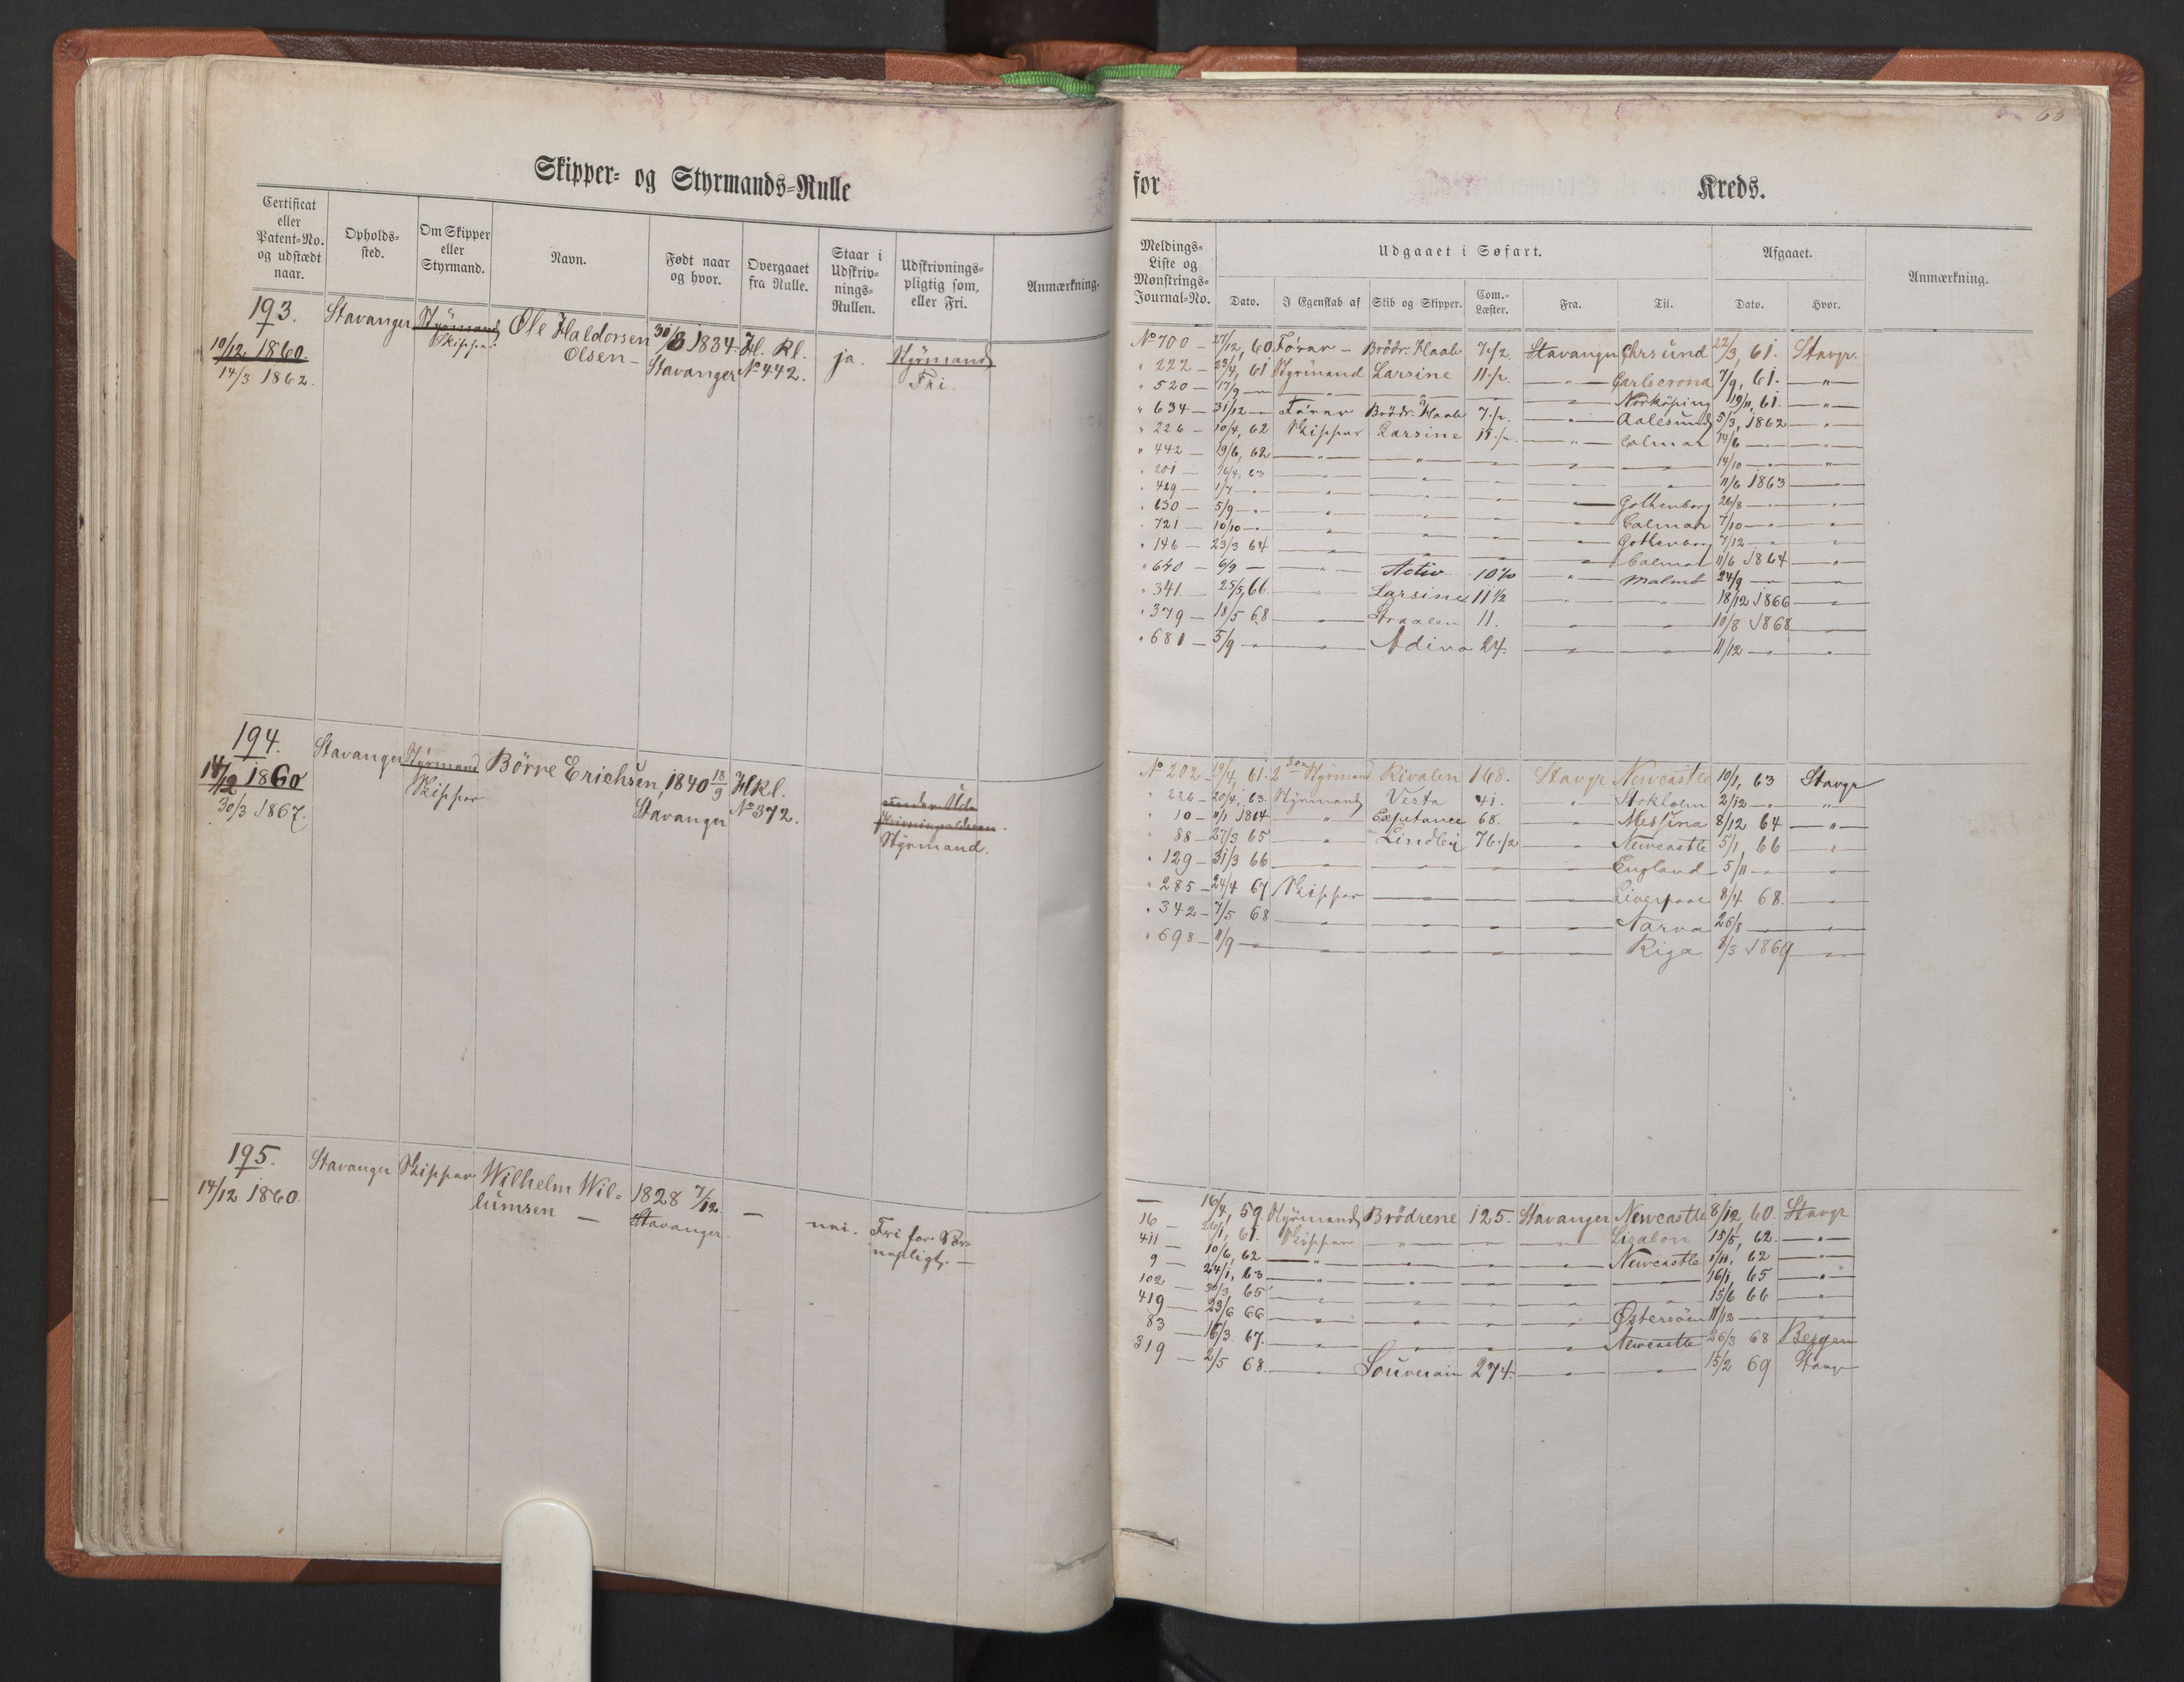 Skipper- og Styrmands-Rulle
Certificat eller Patent-No. og udstædt naar.
Opholds-sted.
Om Skipper eller Styrmand.
Navn.
Født naar og hvor.
Overgaaet fra Rulle.
Staar i Udskriv-nings-Rullen.
Udskrivnings-pligtig som, eller Fri.
Anmærkning.
193.
10/12 1860.
14/3 1862.
Stavanger
Styrmand
Skipper
Ole Haldorsen
Olsen –
30/8 1834
Stavanger
Hl. Rl.
No 442.
ja.
Styrmand
Fri.
194.
14/12 1860
30/3 1867.
Stavanger
Styrmand
Skipper
Börre Erichsen
1840 18/9
Stavanger
HRl.
No 372.
Styrmand.
195.
14/12 1860
Stavanger
Skipper
Wilhelm Wil=
lumsen –
1828 7/12.
Stavanger.
–
nei.
Fri for Vær-
nepligt. –
for Kreds.
Meldings-Liste og Mønstrings-Journal-No.
Udgaaet i Søfart.
Afgaaet.
Anmærkning.
Dato.
I Egenskab af
Skib og Skipper.
Com.-Læster.
Fra.
Til.
Dato.
Hvor.
No 700 – 27/12, 60 Förer – Brödr. Haab 7 1/2 Stavanger 22/3, 61. Stavgr.
" 222 – 23/4, 61 Styrmand Larsine 11 1/2 – " – Carlscrona 7/9, 61. – " –
" 520 – 17/9 – – " – Norköping 19/11, 61. – " –
" 634 – 31/12 – Förer Brödr. Haab 7 1/2 – " – Aalesund 5/3, 1862 – " –
" 226 – 10/4, 62 Skipper Larsine 11 1/2 – " – Calmar 14/6 – " –
" 442 – 19/6, 62 – " – 14/10 – " –
" 201 – 16/4, 63 – " – 11/6 1863 – " –
" 429 – 1/7 – " – Gothenborg 26/8 – " –
" 630 – 5/9 – " – Calmar 7/10 – " –
" 721 – 10/10 – " – Gothenborg 7/12 – " –
" 146 – 23/3 64 – " – Calmar 11/6 1864 – " –
" 640 – 6/9 – – " – Activ 10 1/2 – " – Malmö 24/9 – " –
" 341 – 25/5, 66 – " – Larsine 11 1/2 – " – 18/12 1866 – " –
" 379 – 18/5 68 – " – Straalen 11. – " – 10/8 1868 – " –
" 681 – 5/9 – " – Adina 24. – " – 11/12 – " –
No 202 – 19/4, 61. 2den Styrmand Rivalen 168. Stavgr Newcastle 10/1, 63 Stavgr
" 226 – 20/4, 63. Styrmand Vesta 41. " Stokholm 2/12 – " –
" 10 – 11/1 1864 – " – Exptance 68. – " – Messina 8/12 64 – " –
" 88 – 27/3 65 – " – Lindlei 76 1/2 – " – Newcastle 5/1, 66 – " –
" 129 – 31/3 66 – " – England 5/11 – " –
" 285 – 24/4 67 Skipper – " – Liverpool 8/4 68. – " –
" 342 – 7/5 68 – " – Narva 26/8 – " –
" 698 – 11/9 – " – Riga 8/3 1869 – " –
– 16/4, 59. Styrmand Brödrene 125. Stavanger Newcastle 8/12, 60. Stavgr
16 – 26/1, 61. Skipper – " – Lisabon 15/5, 62. – " –
411 – 10/6, 62 – " – Newcastle 1/11, 62 – " –
9 – 24/1, 63 – " – 16/1, 65 – " –
102 – 30/3, 65 – " – 15/6 66 – " –
419 – 23/6 66 – " – Østersöen 11/12 – " –
83 – 15/3. 67. – " – Newcastle 26/3 68 Bergen
319 – 2/5 68. – " – Souverain 274. – " – 15/2 69 Stavgr